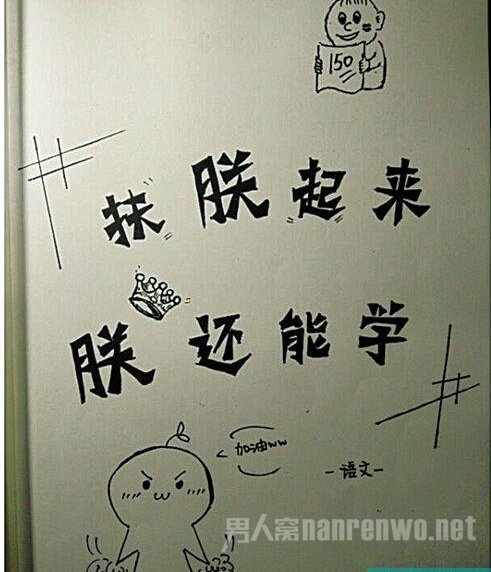 150
扶朕起来
朕还能学
加油ww
-语文-
男人窝nanrenwo.net